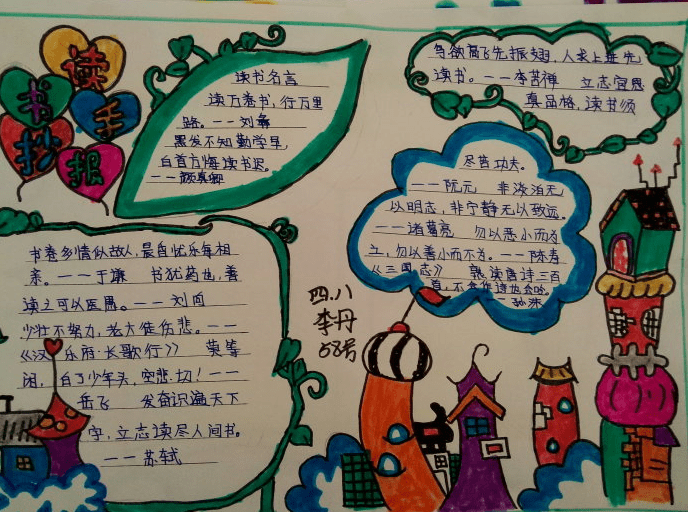 读书手抄报
读书名言
读万卷书，行万里
路。——刘彝
黑发不知勤学早，
白首方悔读书迟。
——颜真卿
鸟欲高飞先振翅，人求上进先
读书。——李苦禅 立志宜思
真品格，读书须
尽苦功夫。
——阮元 非淡泊无
以明志，非宁静无以致远。
——诸葛亮 勿以恶小而为
之，勿以善小而不为。——陈寿
《三国志》 熟读唐诗三百
首，不会作诗也会吟。
——孙洙
书卷乡情似故人，晨昏忧乐每相
亲。——于谦 书犹药也，善
读之可以医愚。——刘向
少壮不努力，老大徒伤悲。——
《汉 乐府·长歌行》 莫等
闲，白了少年头，空悲切！——
岳飞 发奋识遍天下
字，立志读尽人间书。
——苏轼
四.八
李丹
58号